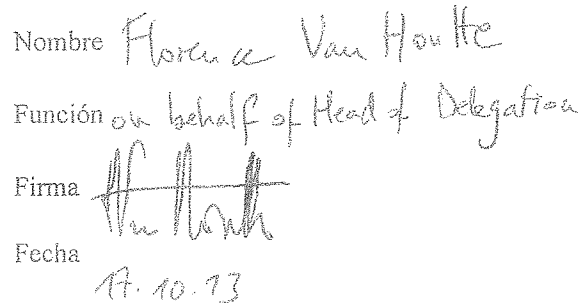 Nombre Florence Van Houtte
Función on behalf of Head of Delegation
Firma Van Houtte
Fecha
17.10.13